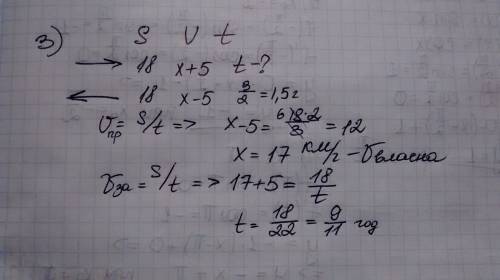 3) S V t
→ 18 x+5 t-?
← 18 x-5 3/2=1,5г
Vпр=S/t => x-5=18·2/3=12
x=17 км/г-Vвласна
Vза=S/t => 17+5=18/t
t=18/22=9/11 год